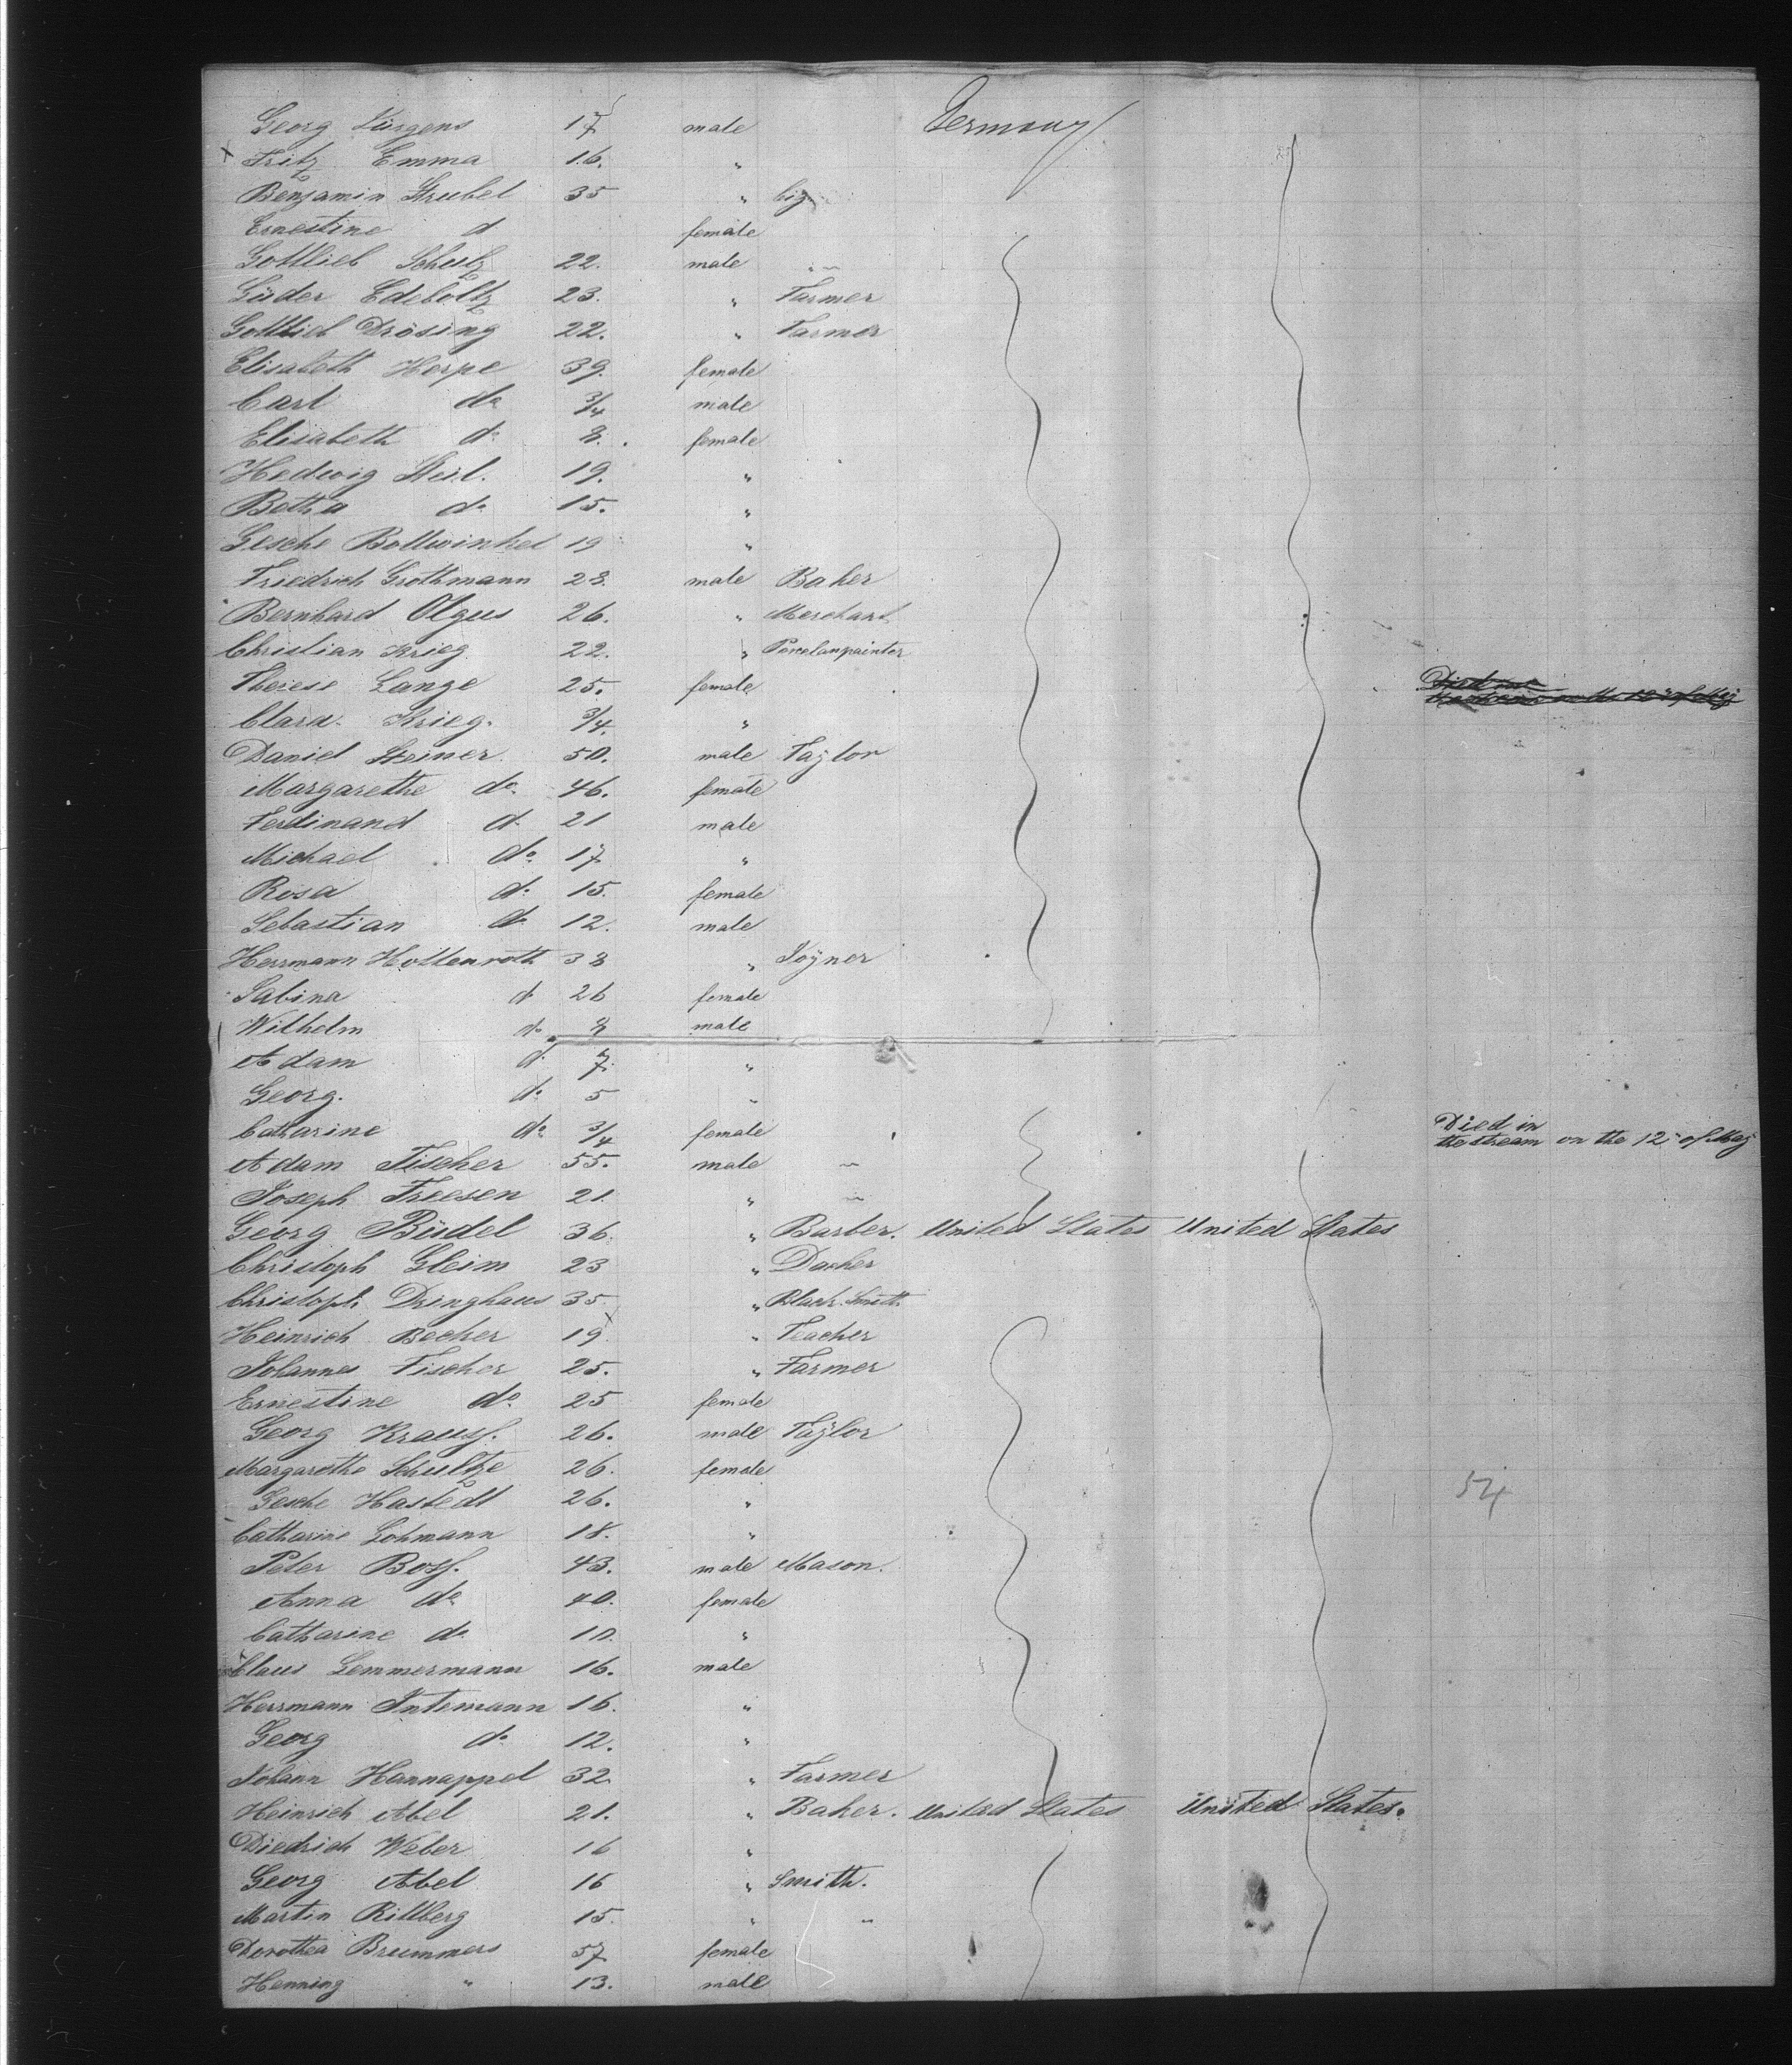 Georg Jürgens 17 male Germany
x Fritz Emma 16. "
Benjamin Strubel 35 "
Ernestine d female
Gottlieb Schulz 22. male "
Lüder Edeboltz 23. " Farmer
Gottlieb Drösing 22. " Farmer
Elisabeth Herpe 39. female
Carl do 3/4 male
Elisabeth do 8. female
Hedwig Steil. 19. "
Betha do 15. "
Gesche Bollwinkel 19 "
Friedrich Grothmann 28. male Baker
Bernhard Olgus 26. " Merchant
Christian Krieg 22. " Porcelanpainter
Therese Lange 25. female
Clara Krieg. 3/4. "
Daniel Steiner. 50. male Taylor
Margarethe do 46. female
Ferdinand do 21 male
Michael do 17. "
Rosa do 15. female
Sebastian do 12. male
Herrmann Hottenroth 38 " Joyner
Sabina do 26 female
Wilhelm do 8 male
Adam do 7. "
Georg. do 5 "
Catharine do 3/4 female Died in
the stream on the 12 of May
Adam Fischer 55. male "
Joseph Freesen 21. " "
Georg Büdel 36. " Barber. United States United States
Christoph Gleim 23 " Dacher
Christoph Dringhaus 35. " Black Smith
Heinrich Becker 19. " Teacher
Johannes Fischer 25. " Farmer
Ernestine do 25 female
Georg Krauss. 26. male Taylor
Margarethe Schultze 26. female
Gesche Hastedt 26. "
Catharine Lohmann 18. "
Peter Boss. 43. male Mason.
Anna do 40. female
Catharine do 10. "
Claus Lemmermann 16. male
Herrmann Intemann 16. "
Georg do 12. "
Johann Hannappel 32. " Farmer
Heinrich Abel 21. " Baker. United States United States.
Diedrich Weber 16 "
Georg Abel 16 " Smith.
Martin Rillberg 15. " "
Dorothea Brummers 57 female
Henning " 13. male